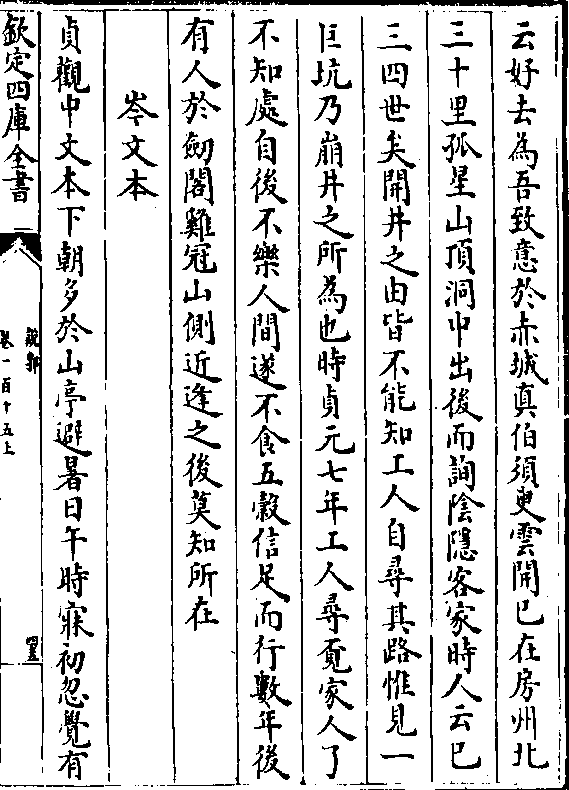 云好去為吾致意於赤城真伯須臾雲開已在房州北
三十里孤星山頂洞中出後而詢陰隱客家時人云已
三四世矣開井之由皆不能知工人自尋其路惟見一
巨坑乃崩井之所為也時貞元七年工人尋覓家人了
不知處自後不樂人間遂不食五穀信足而行數年後
有人於劒閣雞冠山側近逢之後莫知所在
岑文本
貞觀中文本下朝多於山亭避暑日午時寐初忽覺有
欽定四庫全書
説郛
卷一百十五上